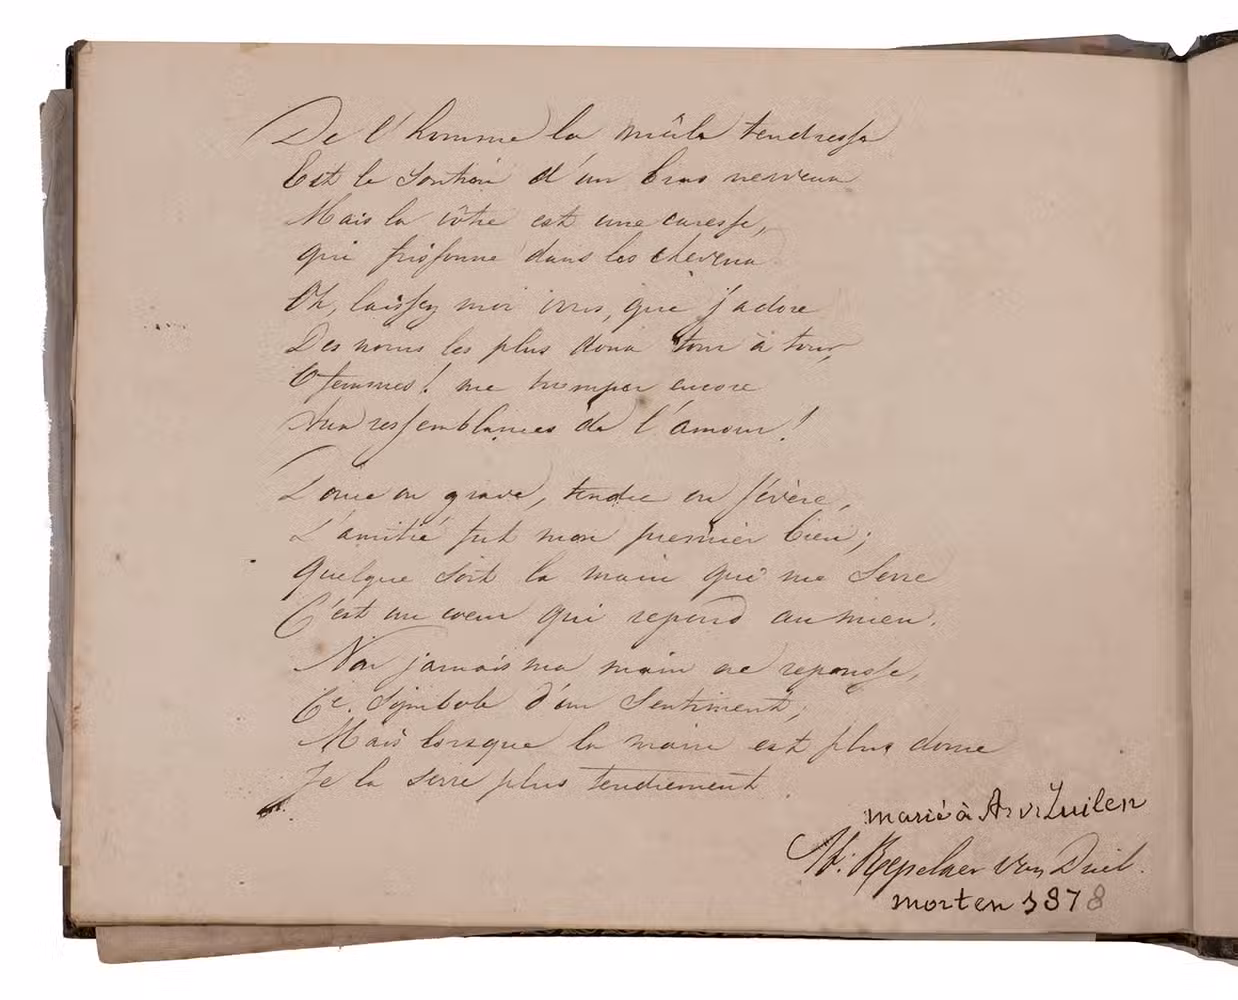 De l'homme la mâle tendresse
Est le soutien d'un bras nerveux
Mais la vôtre est une caresse,
qui frissonne dans les cheveux
Oh, laissez moi vous, que j'adore
Des noms les plus doux tour à tour,
O femmes! me tromper encore
Aux ressemblances de l'amour!
Douce ou grave, tendre ou sévère,
L'amitié fut mon premier bien;
quelque soit la main qui me serre
C'est un coeur qui repond au mien.
Non jamais ma main ne repousse,
Ce symbole d'un sentiment;
Mais lorsque la main est plus douce
Je la serre plus tendrement
marié à Zuilen
Repelaer van Driel.
mort en 1878